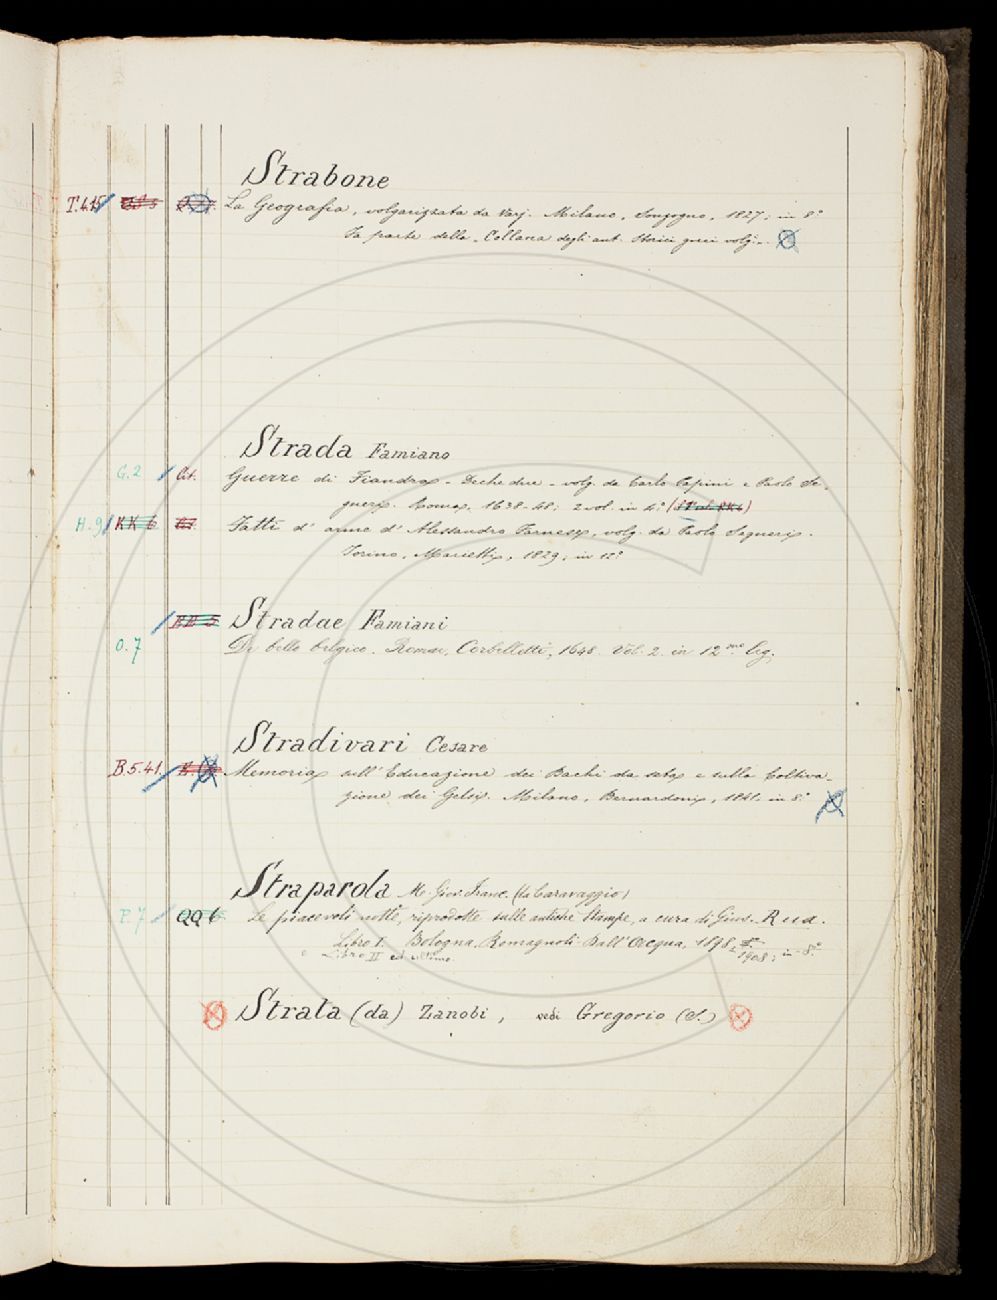 Strabone
T.4.15 La Geografia, volgarizzata da Varj. Milano, Sonzogno, 1827; in 8°
Fa parte della Collana degli ant. Storici greci volg.
Strada Famiano
G.2 Cit. Guerre di Fiandra - Deche due - volg. da Carlo Papini e Paolo Se-
gneri. Roma, 1638-48; 2 vol. in 4°
H.9 KK 6 Fatti d' arme d' Alessandro Farnese, volg. da Paolo Segneri.
Torino, Marietti, 1829, in 12°
Stradae Famiani
O.7 De bello belgico. Romae, Corbelletti, 1648. Vol. 2. in 12mo leg.
Stradivari Cesare
B.5.41 Memoria sull' Educazione dei Bachi da seta e sulla Coltiva-
zione dei Gelsi. Milano, Bernardoni, in 8°
Straparola M. Giov. Franc. (da Caravaggio)
P.7 QQ 6 Le piacevoli notti, riprodotte sulle antiche stampe, a cura di Gius. Rua.
Libro I. Bologna, Romagnoli-Dall' Acqua, 1898-
Libro II ed ultimo. 1908; in 8°
Strata (da) Zanobi, vedi Gregorio (S.)